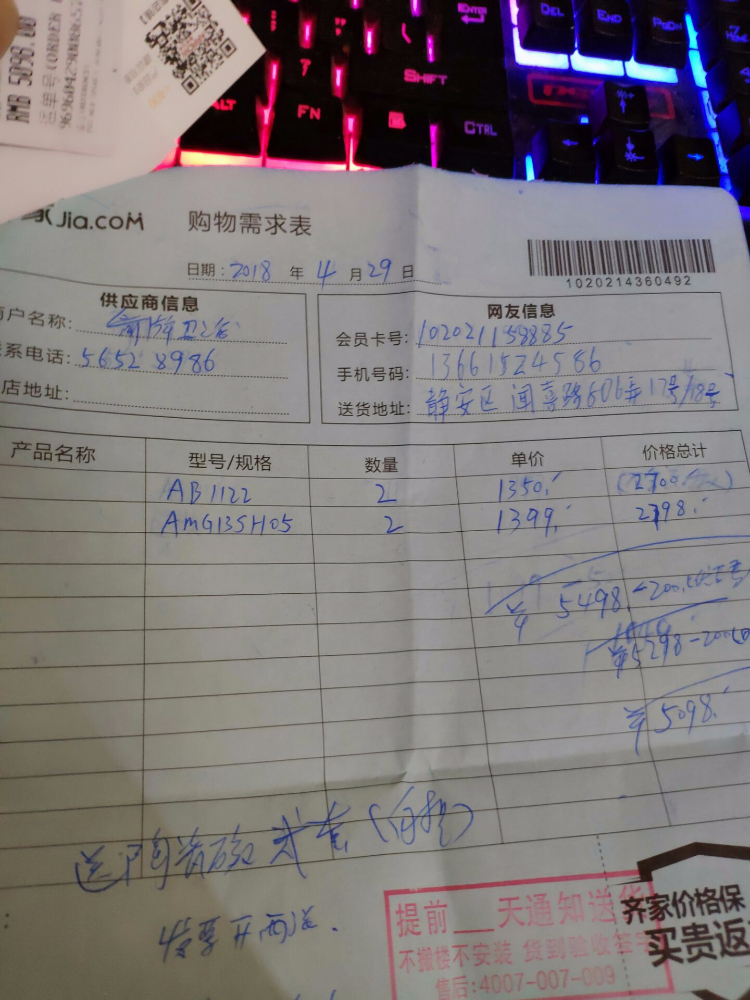 RMB 5098.00
ENTER
DEL
END
PGDN
7
SHIFT
ALT
FN
CTRL
Jia.com
购物需求表
日期: 2018 年 4 月 29 日
1020214360492
供应商信息
户名称:
系电话: 5652 8986
店地址:
网友信息
会员卡号: 102021158885
手机号码: 13661524586
送货地址: 静安区 闻喜路806弄17号/18号
产品名称 型号/规格 数量 单价 价格总计
AB1122 2 1350. (2700.)
AMG13SH05 2 1399. 2798.
¥ 5498. -200.
¥5298 -200
¥5098.
送 (自提)
发票开 送.
提前__天通知送货
不搬楼不安装 货到验收签字
售后:4007-007-009
齐家价格保
买贵返